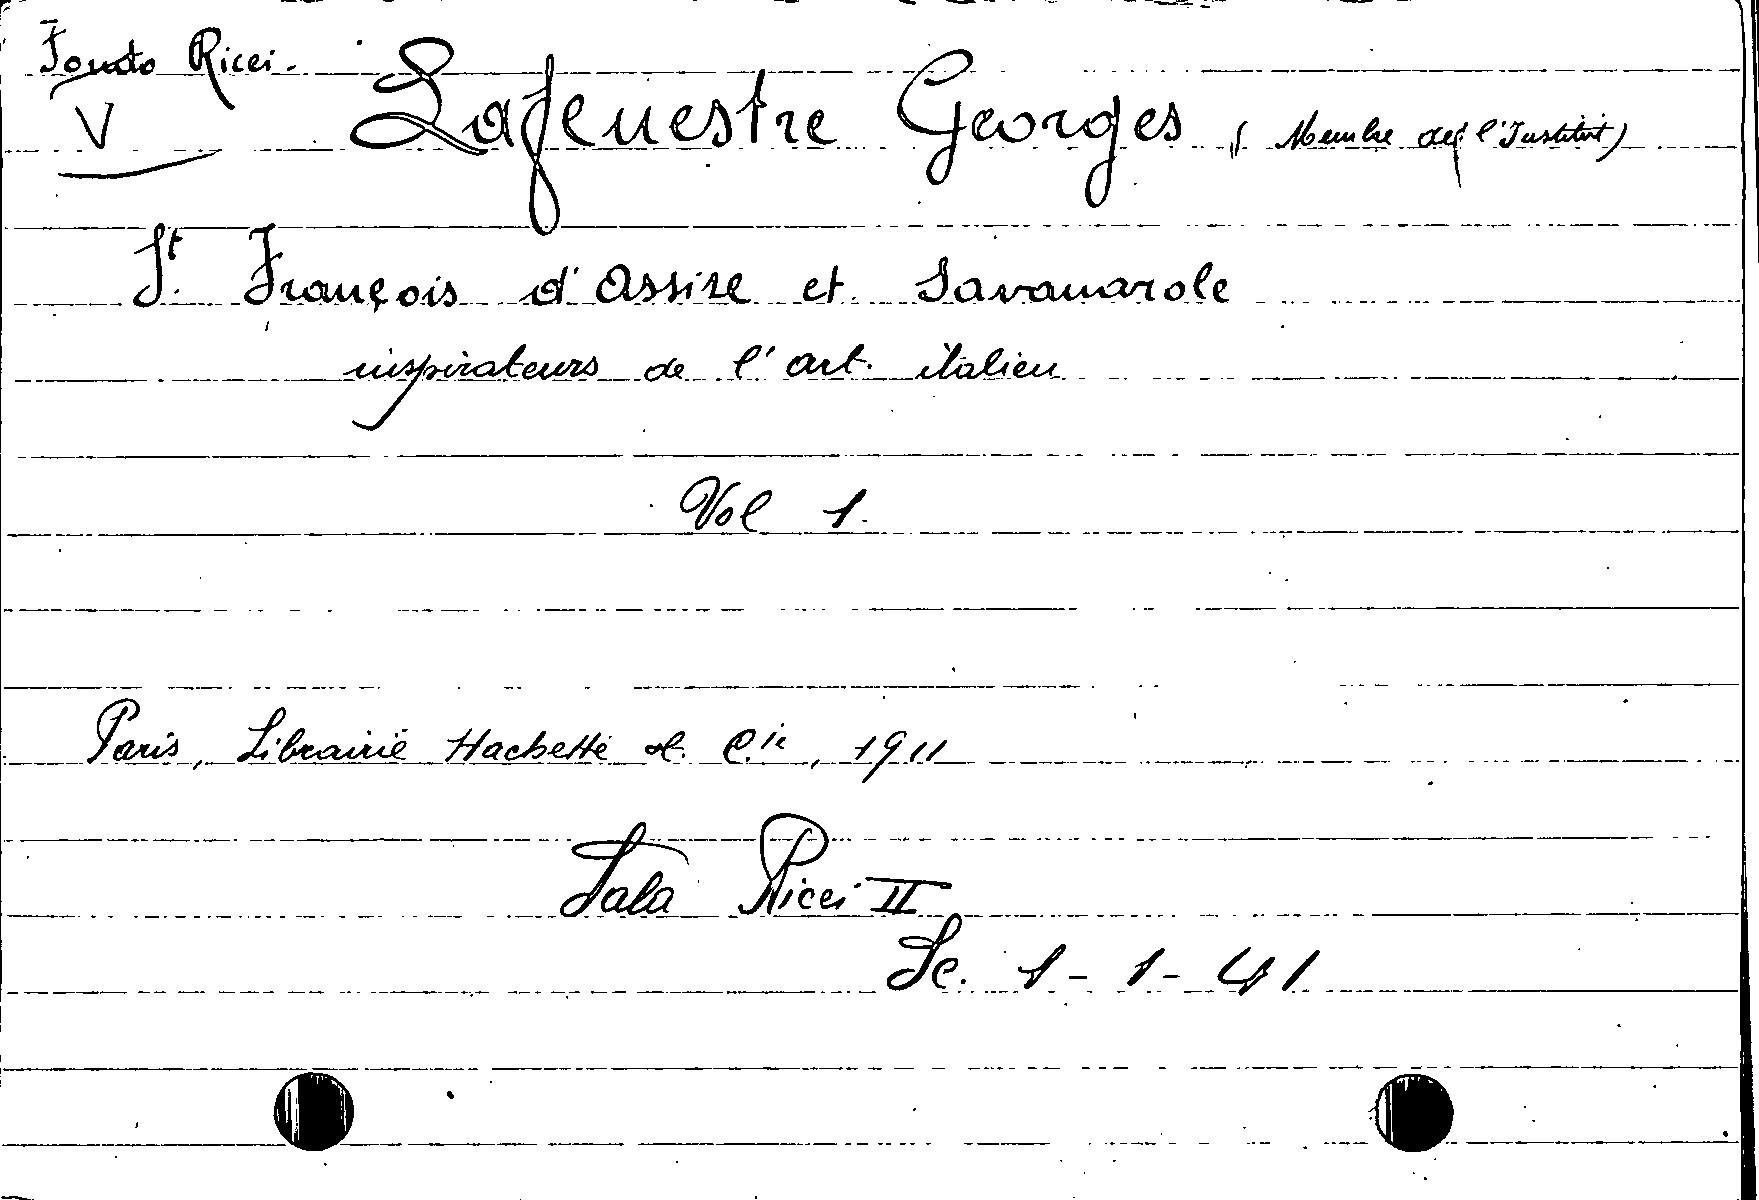 Fondo Ricci.
V
Lafenestre Georges (Membre de l'Institut)
St. François d'Assise et Savonarole
inspirateurs de l'art italien
Vol 1.
Paris, Librairie Hachette et Cie, 1911
Sala Ricci II
Sc. 1-1-41